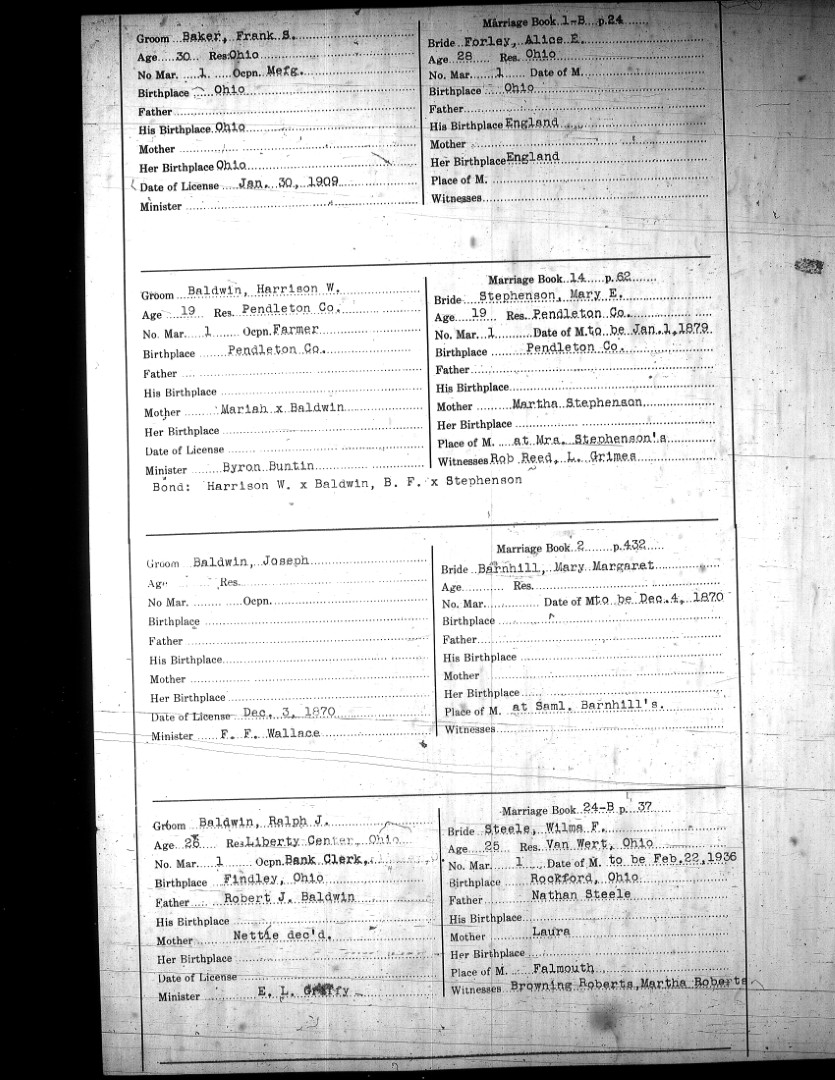 Groom Baker, Frank S.
Age 30 Res. Ohio
No Mar. 1. Ocpn. Mefg.
Birthplace Ohio
Father
His Birthplace Ohio
Mother
Her Birthplace Ohio
Date of License Jan. 30, 1909
Minister
Marriage Book 1-B p. 24
Bride Forley, Alice E.
Age 28 Res. Ohio
No. Mar. 1 Date of M.
Birthplace Ohio
Father
His Birthplace England
Mother
Her Birthplace England
Place of M.
Witnesses
Groom Baldwin, Harrison W.
Age 19 Res. Pendleton Co.
No. Mar. 1 Ocpn. Farmer
Birthplace Pendleton Co.
Father
His Birthplace
Mother Mariah x Baldwin
Her Birthplace
Date of License
Minister Byron Buntin
Marriage Book 14 p. 62
Bride Stephenson, Mary E.
Age 19 Res. Pendleton Co.
No. Mar. 1 Date of M. to be Jan. 1, 1879
Birthplace Pendleton Co.
Father
His Birthplace
Mother Martha Stephenson
Her Birthplace
Place of M. at Mrs. Stephenson's
Witnesses Rob Reed, L. Grimes
Bond: Harrison W. x Baldwin, B. F. x Stephenson
Groom Baldwin, Joseph
Age Res.
No Mar. Ocpn.
Birthplace
Father
His Birthplace
Mother
Her Birthplace
Date of License Dec. 3, 1870
Minister F. F. Wallace
Marriage Book 2 p. 432
Bride Barnhill, Mary Margaret
Age Res.
No. Mar. Date of M. to be Dec. 4, 1870
Birthplace
Father
His Birthplace
Mother
Her Birthplace
Place of M. at Saml. Barnhill's.
Witnesses
Groom Baldwin, Ralph J.
Age Res. Liberty Center, Ohio
No. Mar. 1 Ocpn. Bank Clerk,
Birthplace Findley, Ohio
Father Robert J. Baldwin
His Birthplace
Mother Nettie dec'd.
Her Birthplace
Date of License
Minister E. L.
Marriage Book 24-B p. 37
Bride Steele, Wilma F.
Age 25 Res. Van Wert, Ohio
No. Mar. 1 Date of M. to be Feb. 22, 1936
Birthplace Rockford, Ohio
Father Nathan Steele
His Birthplace
Mother Laura
Her Birthplace
Place of M. Falmouth
Witnesses Browning Roberts, Martha Roberts